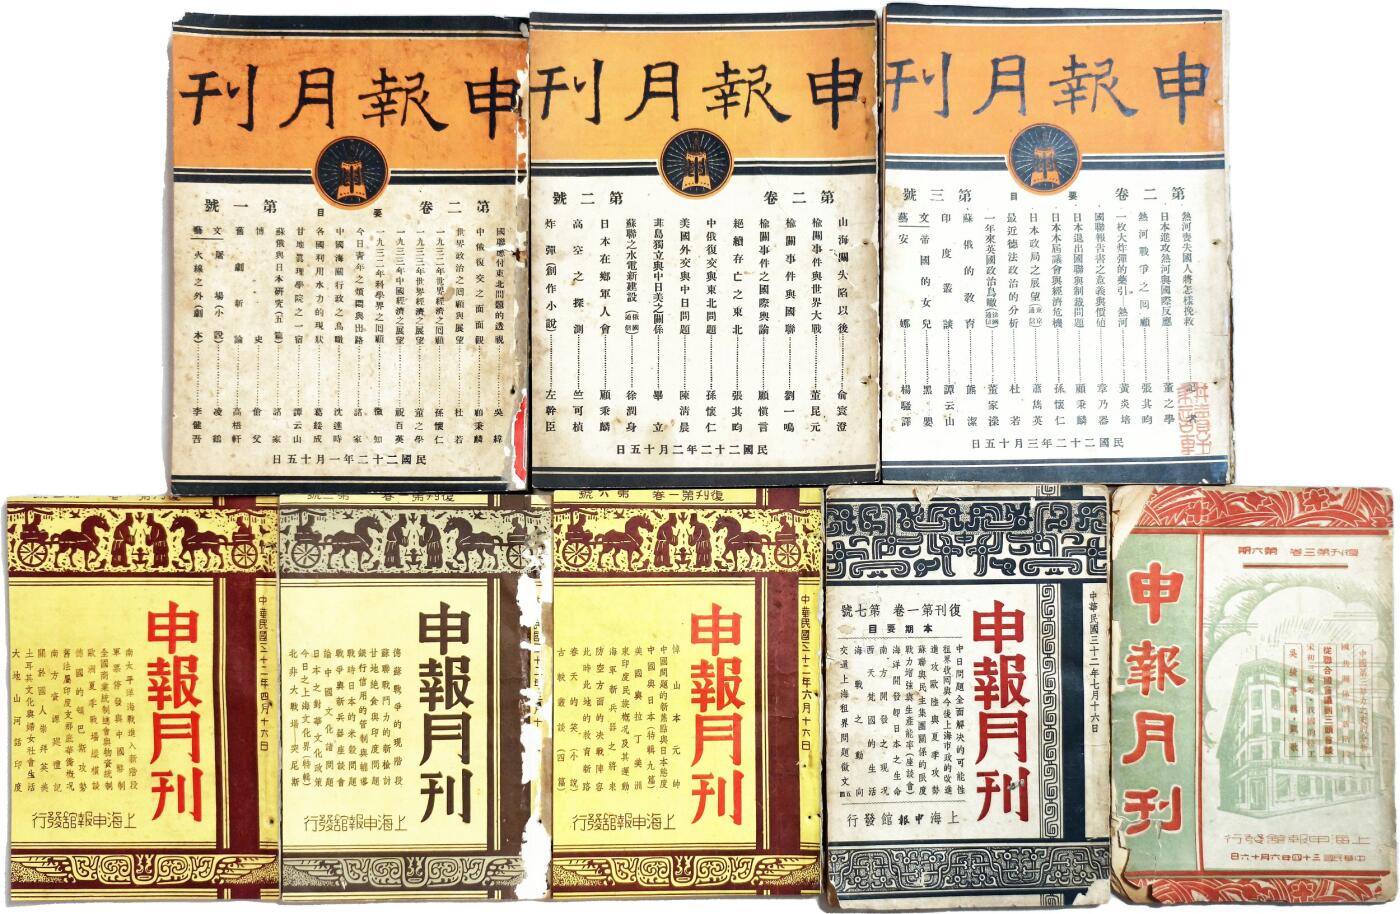 申報月刊
第二卷 要目 第一號
國聯應付東北問題的透視 吳縡
中俄復交之面面觀 顧秉麟
世界政治之回顧與展望 杜若
一九三二年世界經濟之回顧 孫懷仁
一九三三年世界經濟之展望 董之學
一九三三年中國經濟之展望 祝百英
一九三二年科學界之回顧 微知
今日青年之煩悶與出路
中國海關行政之鳥瞰 沈達時
各國利用水力的現狀 葛綏成
甘地眞理學院之一宿 譚云山
蘇俄與日本研究(五篇) 諸家
博史 偷父
舊劇新論 高梧軒
文 屠場(小說) 凌鶴
藝 火線之外(劇本) 李健吾
民國二十二年一月十五日
申報月刊
第二卷 第二號
山海關失陷以後 俞寰澄
榆關事件與世界大戰 董昆元
榆關事件與國聯 劉一鳴
榆關事件之國際輿論 顧愼言
絕續存亡之東北 張其昀
中俄復交與東北問題 孫懷仁
美國外交與中日問題 陳清晨
菲島獨立與中日美之關係 畢立
蘇聯之水電新建設(俄國通信) 徐潤身
日本在鄉軍人會 顧秉麟
高空之探測 竺可楨
炸彈(創作小說) 左幹臣
民國二十二年二月十五日
申報月刊
第二卷 要目 第三號
熱河喪失國人將怎樣挽救
日本進攻熱河與國際反應 董之學
熱河戰爭之回顧 張其昀
一枚大炸彈的藥引—熱河 黃炎培
國聯報告書之意義與價値 章乃器
日本退出國聯與制裁問題 顧秉麟
日本本屆議會與經濟危機 孫懷仁
日本政局之展望(東京通信) 蕭雋英
最近德法政治的分析 杜若
一年來英國政治鳥瞰(英國通信) 董家溁
蘇俄的敎育 熊潔
印度叢談 譚云山
文 帝國的女兒 黑嬰
藝 安娜 楊騷譯
民國二十二年三月十五日
復刊第一卷
申報月刊
中華民國三十二年四月十六日
南太平洋戰進入新階段
軍票停發與中國幣制
全國商業統制總會與物資統制
歐洲夏季戰場縱橫談
德國的頓巴斯攻勢
舊法屬印度支那底華僑概況
南方資源建禮記
關於國人崇拜英美
土耳其文化與婦女社會生活
大地山河話印度
上海申報館發行
復刊第一卷 第三號
申報月刊
德蘇戰爭的現階段
蘇聯戰鬥力的新檢討
甘地絕食與印度問題
銀行信用的管制與輔導
戰時日本的米穀問題
戰爭與新兵器座談會
論中國文化諸問題
日本之對華文化政策
今日之上海文化界(特輯)
北非大戰場突尼斯
上海申報館發行
復刊第一卷 第六號
申報月刊
中華民國三十二年六月十六日
悼山本元帥
中國問題的新焦點與日本態度
中國與日本(特輯九篇)
美國與拉丁美洲
東印度民族概況及其運動
海軍新兵器之將來
防空方面的決戰陣容
此時此地的教育新路
春天的笑(小說)
古較叢談(四篇)
上海申報館發行
申報月刊
中華民國三十二年七月十六日
復刊第一卷 第七號
本期要目
中日問題全面解決的可能性
租界復囘與今後上海市政的改進
進攻歐陸與夏季攻勢
蘇聯與民生集團關係的限度
戰力增強與生產能率(座談會)
海洋開發卽日本之生命
南方開發之現況
西天梵國的生活
海戰之動向
交還上海租界問題徵文
上海申報館發行
復刊第三卷 第六期
申報月刊
上海申報館發行
中華民國三十四年六月十六日